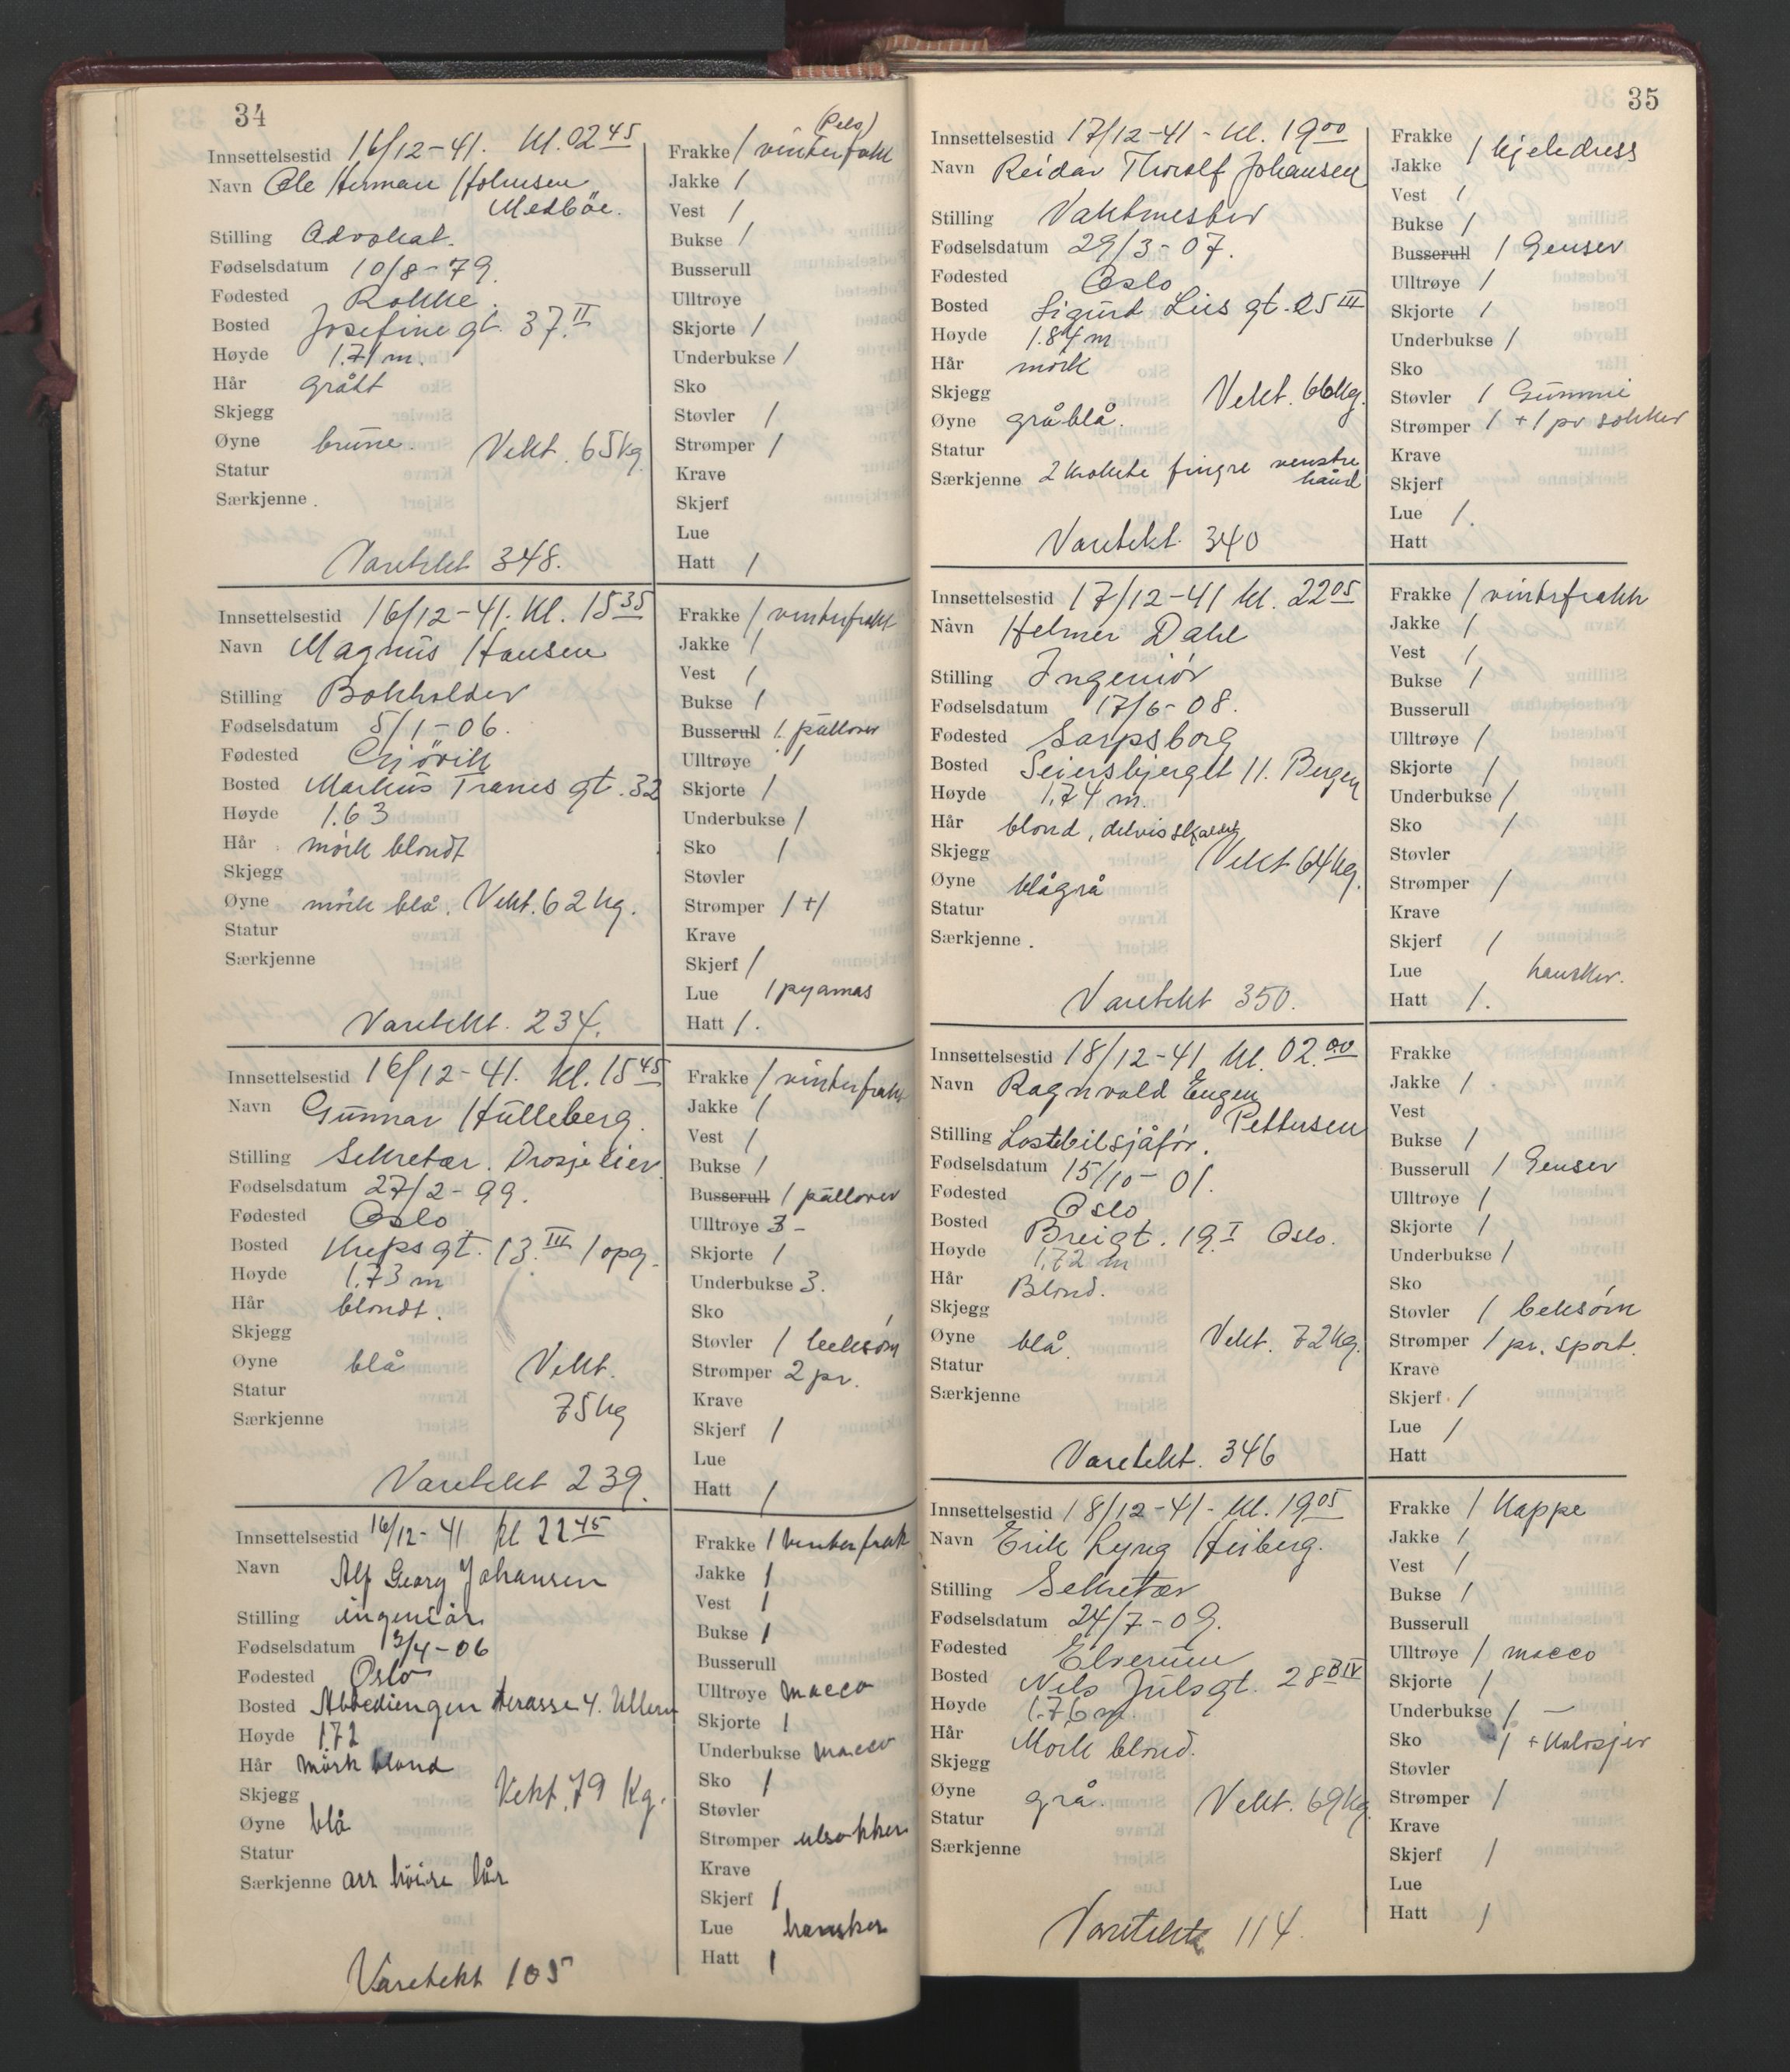 34
Innsettelsestid 16/12-41. Kl. 02 45
Navn Ole Herman Holmsen
Medböe.
Stilling Advokat.
Fødselsdatum 10/8-79.
Fødested Rokke.
Bosted Josefine gt. 37. II
Høyde 1.71 m.
Hår grått
Skjegg
Øyne brune. Vekt. 65 kg
Statur
Særkjenne.
Varetekt 348.
(Pels)
Frakke / vinterfakk
Jakke /
Vest /
Bukse /
Busserull
Ulltrøye
Skjorte /
Underbukse /
Sko
Støvler /
Strømper /
Krave
Skjerf
Lue
Hatt /
Innsettelsestid 16/12-41. Kl. 15 35
Navn Magnus Hansen
Stilling Bokholder
Fødselsdatum 5/1-06.
Fødested Gjövik
Bosted Markus Tranes gt. 32
Høyde 1.63
Hår mörk blondt
Skjegg
Øyne mörk blå. Vekt. 62 kg.
Statur
Særkjenne
Varetekt. 234.
Frakke / vinterfrakk
Jakke /
Vest /
Bukse /
Busserull /. pullover
Ulltrøye /
Skjorte /
Underbukse /
Sko /
Støvler
Strømper / + /
Krave
Skjerf /
Lue / pyamas
Hatt /.
Innsettelsestid 16/12-41. Kl. 15 45
Navn Gunnar Hulleberg.
Stilling Sekretær. Drosjeeier
Fødselsdatum 27/2-99.
Fødested Oslo
Bosted Krepsgt. 13. III / opg.
Høyde 1.73 m
Hår blondt.
Skjegg
Øyne blå Vekt.
Statur 75 kg
Særkjenne
Varetekt 239.
Frakke / vinterfrakk
Jakke /
Vest /
Bukse /
Busserull / pullover
Ulltrøye 3 -
Skjorte /
Underbukse 3.
Sko
Støvler / beksöm
Strømper 2 pr.
Krave
Skjerf /
Lue
Hatt /
Innsettelsestid 16/12-41 kl 22 45
Navn Alf Georg Johansen
Stilling ingeniör
Fødselsdatum 13/4-06
Fødested Oslo
Bosted Abbediengen terasse 4. Ullern
Høyde 1.72
Hår mörk blond
Skjegg Vekt. 79 Kg.
Øyne blå
Statur
Særkjenne arr höire lår
Varetekt 105
Frakke / vinterfrak
Jakke /
Vest /
Bukse /
Busserull
Ulltrøye macco
Skjorte /
Underbukse macco
Sko /
Støvler
Strømper ulsokker
Krave
Skjerf /
Lue hansker
Hatt /
35
Innsettelsestid 17/12-41 - Kl. 19 00
Navn Reidar Thorolf Johansen
Stilling Vaktmester
Fødselsdatum 29/3-07.
Fødested Oslo
Bosted Sigurd Lies gt. 25 III
Høyde 1.84 m
Hår mörk
Skjegg Vekt. 66 kg.
Øyne gråblå.
Statur
Særkjenne 2 krokete fingre venstre
hånd
Varetekt. 340
Frakke
/ kjeledress
Jakke
Vest /
Bukse /
Busserull / Genser
Ulltrøye /
Skjorte /
Underbukse /
Sko
Støvler / Gummi
Strømper / + 1 pr sokker
Krave
Skjerf
Lue /.
Hatt
Innsettelsestid 17/12-41 kl. 22 05
Navn Helmer Dahl
Stilling Ingeniör
Fødselsdatum 17/6-08.
Fødested Sarpsborg
Bosted Seiersbjerget 11. Bergen
Høyde 1.74 m.
Hår blond, delvis skaldet
Skjegg Vekt 64 kg.
Øyne blågrå
Statur
Særkjenne.
Varetekt 350.
Frakke / vinterfrakk
Jakke /
Vest /
Bukse /
Busserull
Ulltrøye /
Skjorte /
Underbukse /
Sko /
Støvler
Strømper /
Krave
Skjerf /
Lue hansker.
Hatt /.
Innsettelsestid 18/12-41 kl. 02.00
Navn Ragnvald Eugen
Pettersen
Stilling Lastebilsjåför.
Fødselsdatum 15/10-01.
Fødested Oslo
Bosted Breigt. 19. I Oslo.
Høyde 1.72 m
Hår Blond.
Skjegg
Øyne blå. Vekt. 72 kg.
Statur
Særkjenne
Varetekt. 346
Frakke
Jakke /
Vest
Bukse /
Busserull / Genser
Ulltrøye /
Skjorte /
Underbukse /
Sko
Støvler / beksöm
Strømper / pr. sport.
Krave
Skjerf /
Lue /
Hatt
Innsettelsestid 18/12-41 - kl. 19 05
Navn Erik Lyng Heiberg.
Stilling Sekretær
Fødselsdatum 24/7-09.
Fødested Elverum
Bosted Nils Juls gt. 28 B IV
Høyde 1.76 m.
Hår Mörk blond.
Skjegg
Øyne grå. Vekt. 69 kg
Statur
Særkjenne
Varetekt 114.
Frakke / Kappe
Jakke /
Vest /
Bukse /
Busserull
Ulltrøye / macco
Skjorte /
Underbukse / —
Sko / + Kalosjer
Støvler
Strømper /
Krave
Skjerf /
Lue
Hatt /